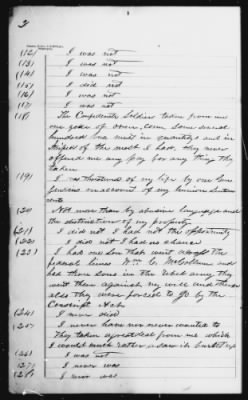 2
(12) I was not
(13) I was not
(14) I was not
(15) I did not
(16) I was not
(17) I was not
(18) The Confederate Soldier taken from me
one yoke of oxen, corn some several
hundred but not in quantity and in
of the most I had, they never
offered me any pay for any thing they
taken
(19) I was threatened of my life by our Con-
federates on account of my union
(20) Not more than by abusive language and
the destruction of my property
(21) I did not I had not the opportunity
(22) I did not I had no chance
(23) I had one Son that went through the
federal lines Wm C. McCollum and
had three sons in the Rebel army they
went there against my will and there
also they were forced to go by the
Conscript Acts
(24) I never did
(25) I never have nor never wanted to
They taken a great deal from me which
I would much rather a saw it burnt up
(26) I was not
(27) I never was
(28) I never was